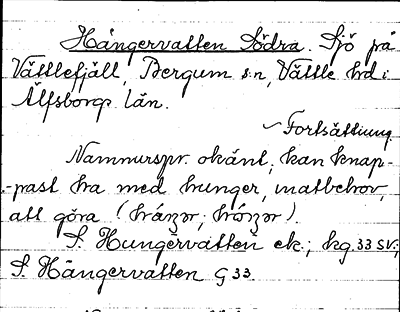 Hängervatten Södra. Sjö på
Vättlefjäll, Bergum s:n, Vättle hd i
Älfsborgs län.
Fortsättning
Namnurspr. okänt, kan knap-
-past ha med hunger, matbehov,
att göra
S. Hungervatten ek.; kg. 33 SV;
S. Hängervatten G 33.